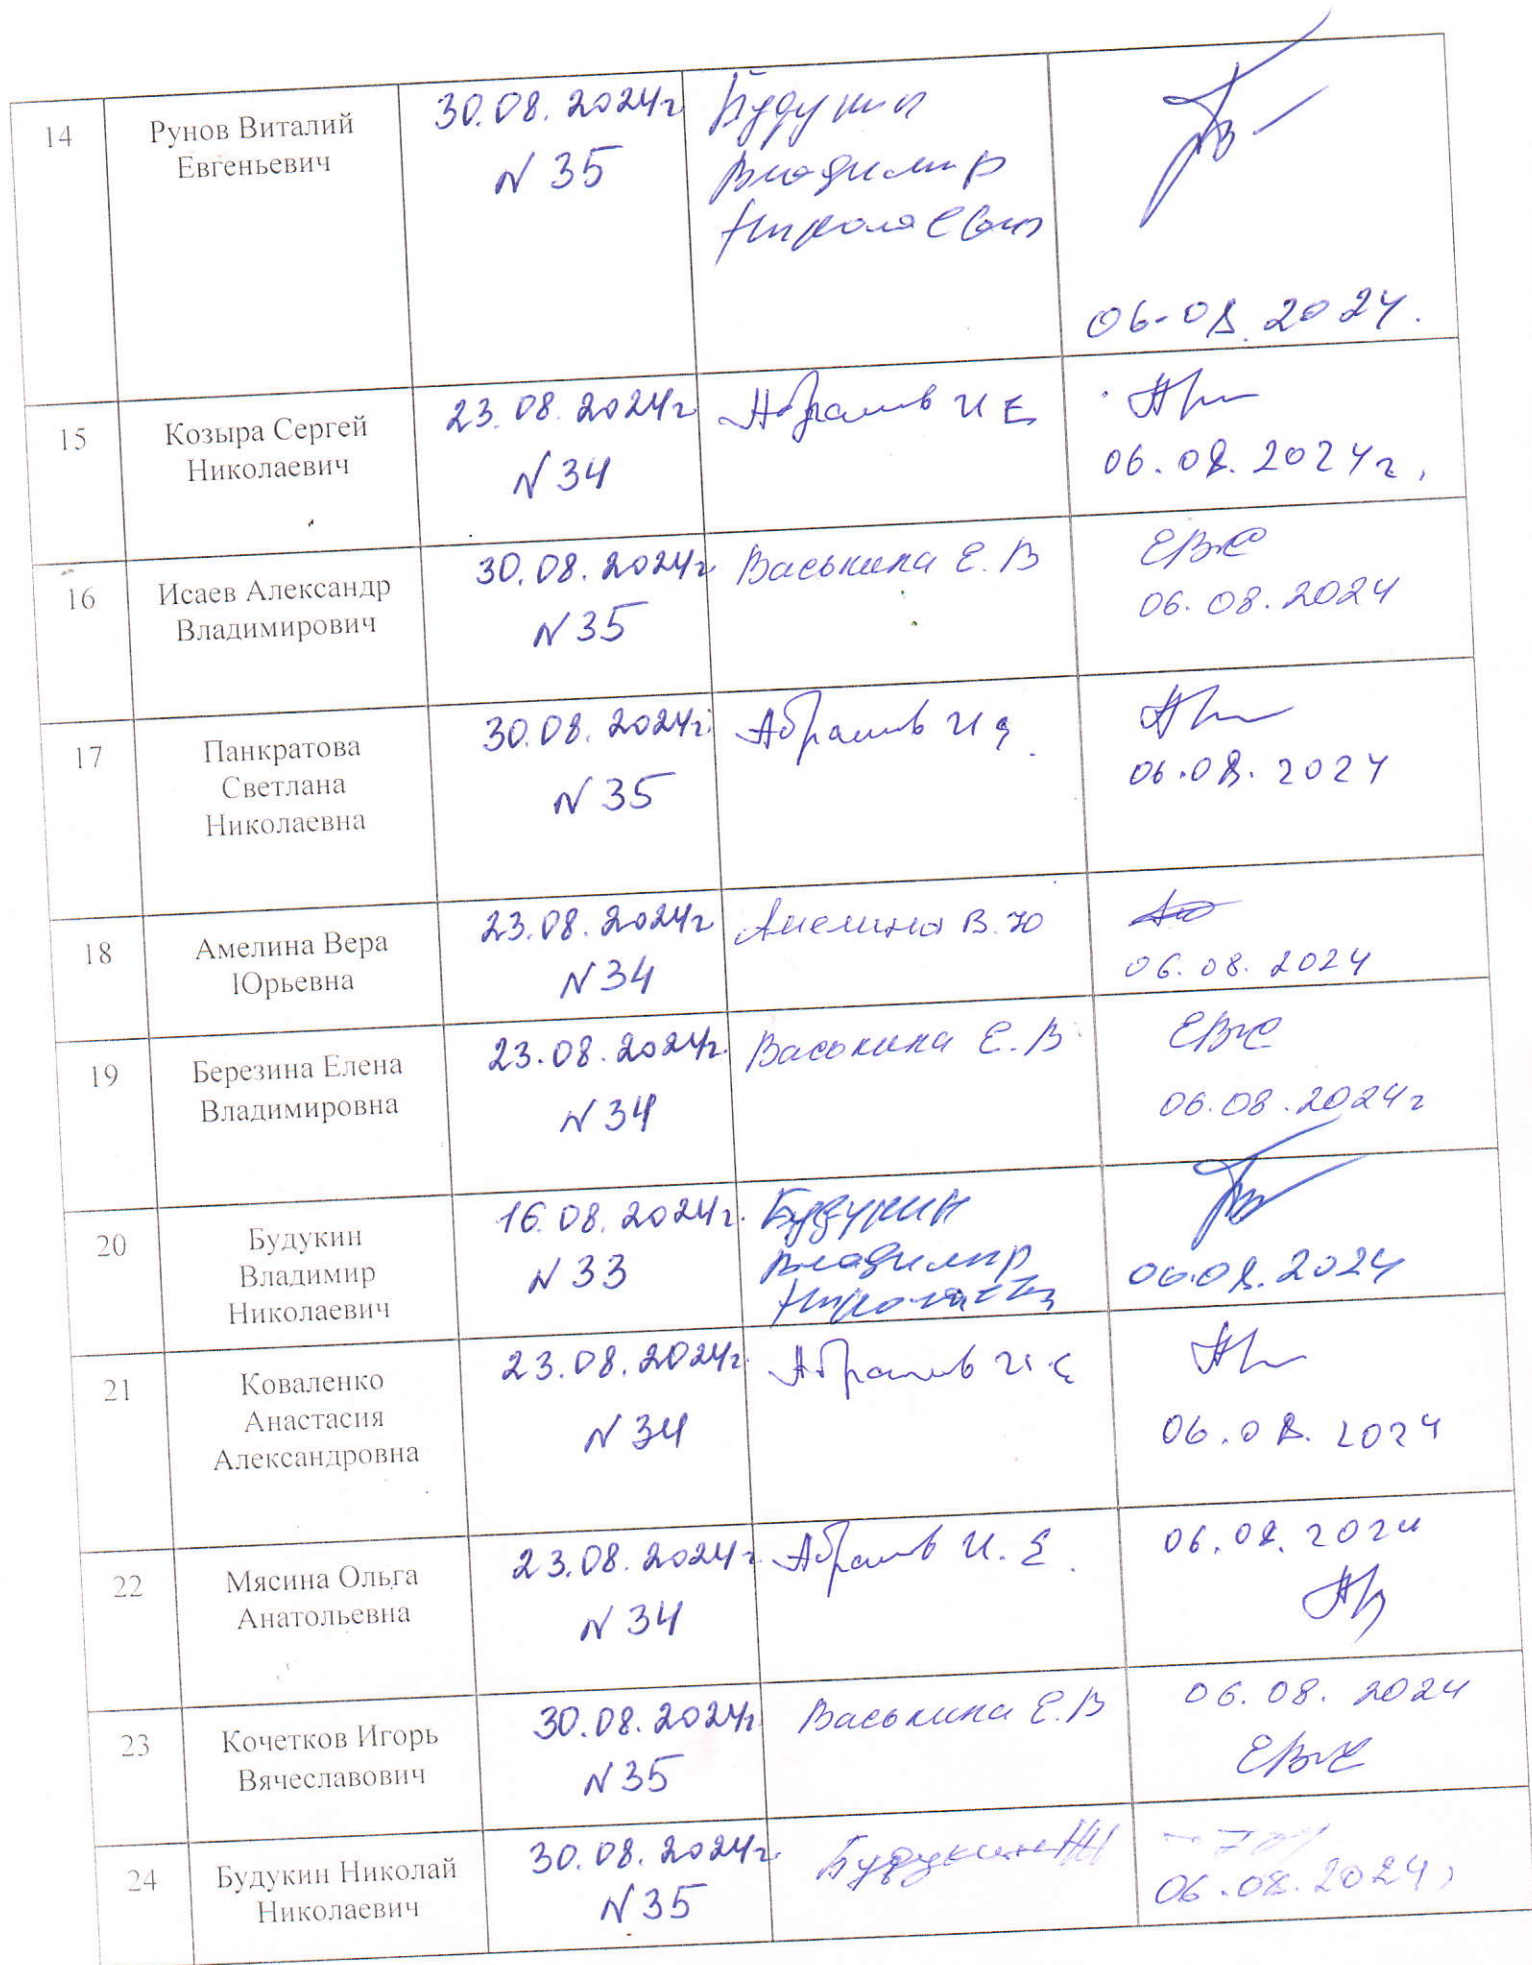 14
Рунов Виталий
Евгеньевич
30.08.2024г
N 35
Будукин
Владимир
Николаевич
06.08.2024.
15
Козыра Сергей
Николаевич
23.08.2024г
N 34
Абрамов И Е
06.08.2024г.
16
Исаев Александр
Владимирович
30.08.2024г
N 35
Васькина Е.В
06.08.2024
17
Панкратова
Светлана
Николаевна
30.08.2024г.
N 35
Абрамов И
06.08.2024
18
Амелина Вера
Юрьевна
23.08.2024г
N 34
Амелина В.Ю
06.08.2024
19
Березина Елена
Владимировна
23.08.2024г.
N 34
Васькина Е.В
06.08.2024г
20
Будукин
Владимир
Николаевич
16.08.2024г.
N 33
Будукин
Владимир
06.08.2024
21
Коваленко
Анастасия
Александровна
23.08.2024г.
N 34
Абрамов И Е
06.08.2024
22
Мясина Ольга
Анатольевна
23.08.2024г
N 34
Абрамов И. Е.
06.08.2024
23
Кочетков Игорь
Вячеславович
30.08.2024г
N 35
Васькина Е.В
06.08.2024
24
Будукин Николай
Николаевич
30.08.2024г.
N 35
Будукин НН
06.08.2024г